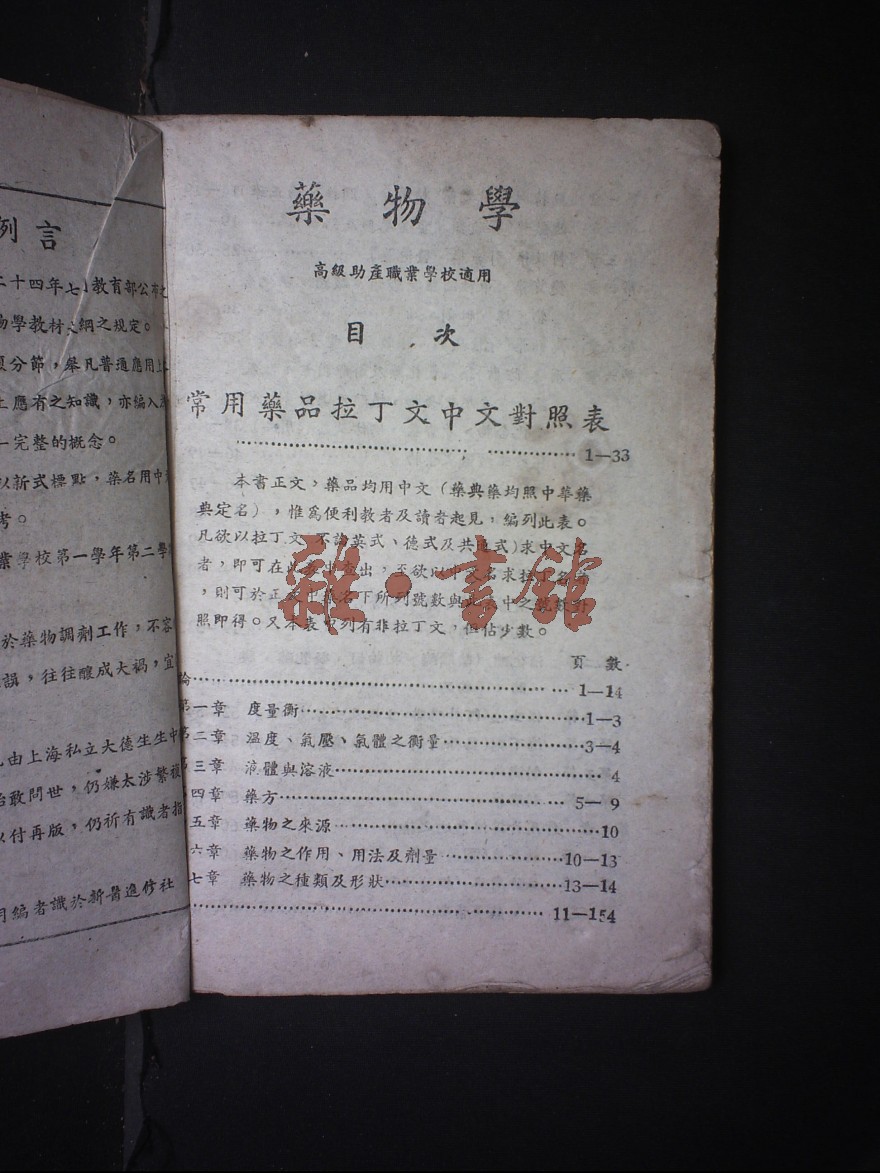 例言
二十四年七月教育部公布之
物學教材大綱之規定。
分節，舉凡普通應用上
應有之知識，亦編入
一完整的概念。
以新式標點，藥名用中
考。
業學校第一學年第二學
於藥物調劑工作，不容
誤，往往釀成大禍，宜
由上海私立大德生生中
敢問世，仍嫌太涉繁複
以付再版，仍祈有識者指
編者識於新醫進修社
藥物學
高級助產職業學校適用
目次
常用藥品拉丁文中文對照表
……………………………… 1—33
本書正文，藥品均用中文（藥典藥均照中華藥
典定名），惟爲便利教者及讀者起見，編列此表。
凡欲以拉丁文（不論英式、德式及共通式）求中文名
者，即可在此表中查出，至欲以中文名求拉丁名
，則可於正文中藥名下所列號數與此表中之號數對
照即得。又本表中列有非拉丁文，但佔少數。
雜·書館
頁數
論……………………………… 1—14
第一章 度量衡………………………………1—3
第二章 溫度、氣壓、氣體之衡量………………………3—4
第三章 液體與溶液……………………………… 4
四章 藥方……………………………… 5—9
五章 藥物之來源………………………………10
六章 藥物之作用、用法及劑量………………10—13
七章 藥物之種類及形狀………………………13—14
……………………………… 11—154